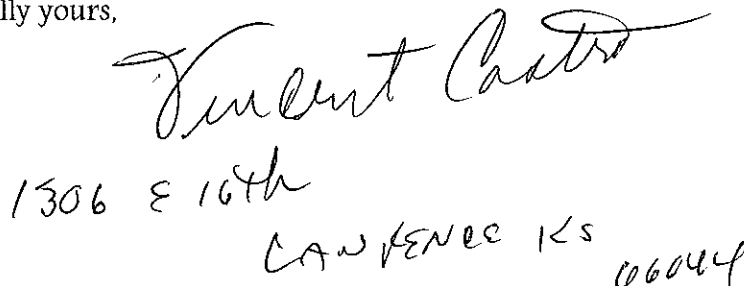 lly yours,
Vincent Castro
1306 E 16th
LAWRENCE KS
66044